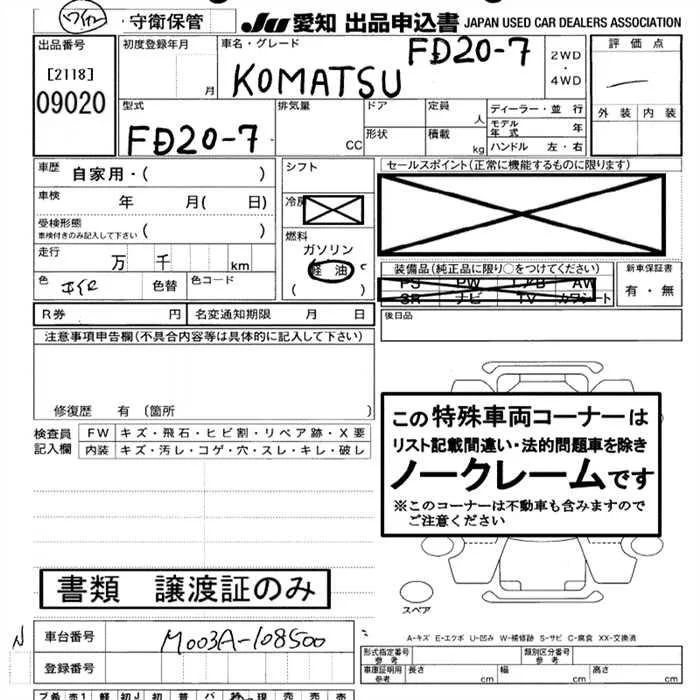 守衛保管 JU 愛知 出品申込書 JAPAN USED CAR DEALERS ASSOCIATION
出品番号 [2118] 09020
初度登録年月 月
車名・グレード KOMATSU FD20-7
2WD ・ 4WD
評価点
外装 内装
型式 FD20-7
排気量 CC
ドア 形状
定員 人 積載 kg
ディーラー・並行
モデル年式 年
ハンドル 左・右
車歴 自家用・( )
車検 年 月( 日)
受検形態 車検付きのみ記入して下さい ( )
走行 万 千 km
色 色替 色コード
シフト
冷房
燃料 ガソリン 軽油 ( )
セールスポイント(正常に機能するものに限ります)
装備品(純正品に限り○をつけてください)
PS PW エアB AW
SR ナビ TV カワシート
新車保証書 有・無
R券 円 名変通知期限 月 日
後日品
注意事項申告欄(不具合内容等は具体的に記入して下さい)
修復歴 有 〔箇所 〕
検査員記入欄
FW キズ・飛石・ヒビ割・リペア跡・X要
内装 キズ・汚レ・コゲ・穴・スレ・キレ・破レ
この特殊車両コーナーは
リスト記載間違い・法的問題車を除き
ノークレームです
※このコーナーは不動車も含みますので
ご注意ください
書類 譲渡証のみ
スペア
A-キズ E-エクボ U-凹み W-補修跡 S-サビ C-腐食 XX-交換済
N 車台番号 M003A-108500
登録番号
形式指定番号 参考
類別区分番号 参考
車庫証明用 参考 長さ cm 幅 cm 高さ cm